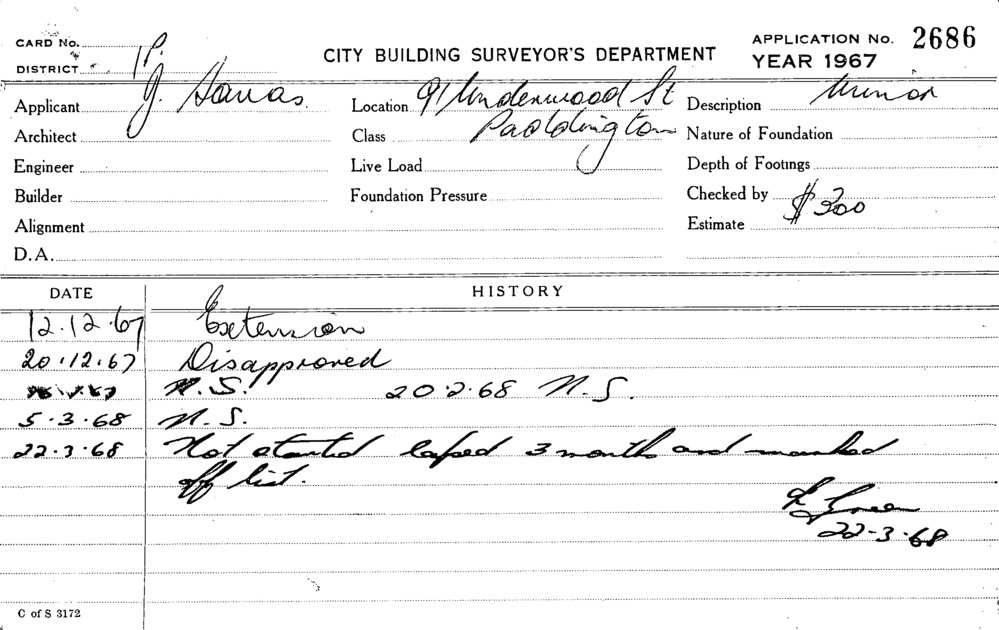 CARD No.
DISTRICT P.
CITY BUILDING SURVEYOR'S DEPARTMENT
APPLICATION No. 2686
YEAR 1967
Applicant
Location 91 Underwood St
Description Minor
Architect
Class Paddington
Nature of Foundation
Engineer
Live Load
Depth of Footings
Builder
Foundation Pressure
Checked by
Alignment
Estimate $300
D.A.
DATE HISTORY
12.12.67 Extension
20.12.67 Disapproved
N.S. 20.2.68 N.S.
5.3.68 N.S.
22.3.68 Not started lapsed 3 months and marked
off list.
Green
22-3-68
C of S 3172